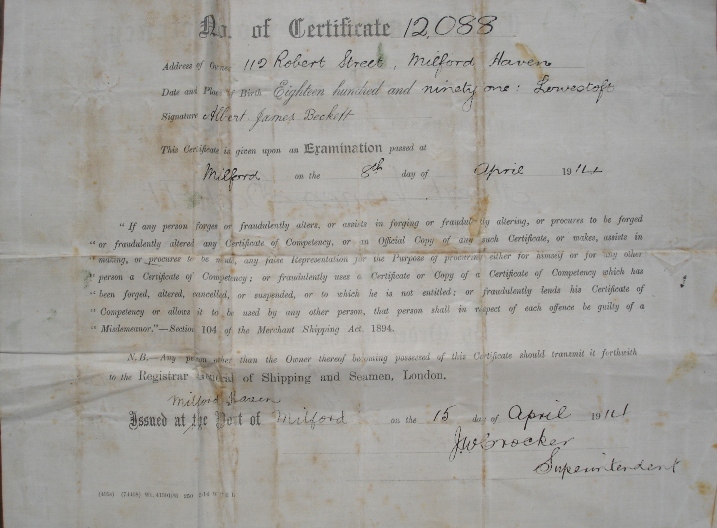 No. of Certificate 12,088
Address of Owner 112 Robert Street, Milford Haven
Date and Place of Birth Eighteen hundred and ninety one: Lowestoft
Signature Albert James Beckett
This Certificate is given upon an Examination passed at
Milford on the 8th day of April 1914
"If any person forges or fraudulently alters, or assists in forging or fraudulently altering, or procures to be forged
"or fraudulently altered any Certificate of Competency, or an Official Copy of any such Certificate, or makes, assists in
"making, or procures to be made, any false Representation for the Purpose of procuring either for himself or for any other
"person a Certificate of Competency; or fraudulently uses a Certificate or Copy of a Certificate of Competency which has
"been forged, altered, cancelled, or suspended, or to which he is not entitled; or fraudulently lends his Certificate of
"Competency or allows it to be used by any other person, that person shall in respect of each offence be guilty of a
"Misdemeanor."—Section 104 of the Merchant Shipping Act. 1894.
N.B.—Any person other than the Owner thereof becoming possessed of this Certificate should transmit it forthwith
to the Registrar General of Shipping and Seamen, London.
Milford Haven
Issued at the Port of Milford on the 15 day of April 1914
J W Crocker
Superintendent